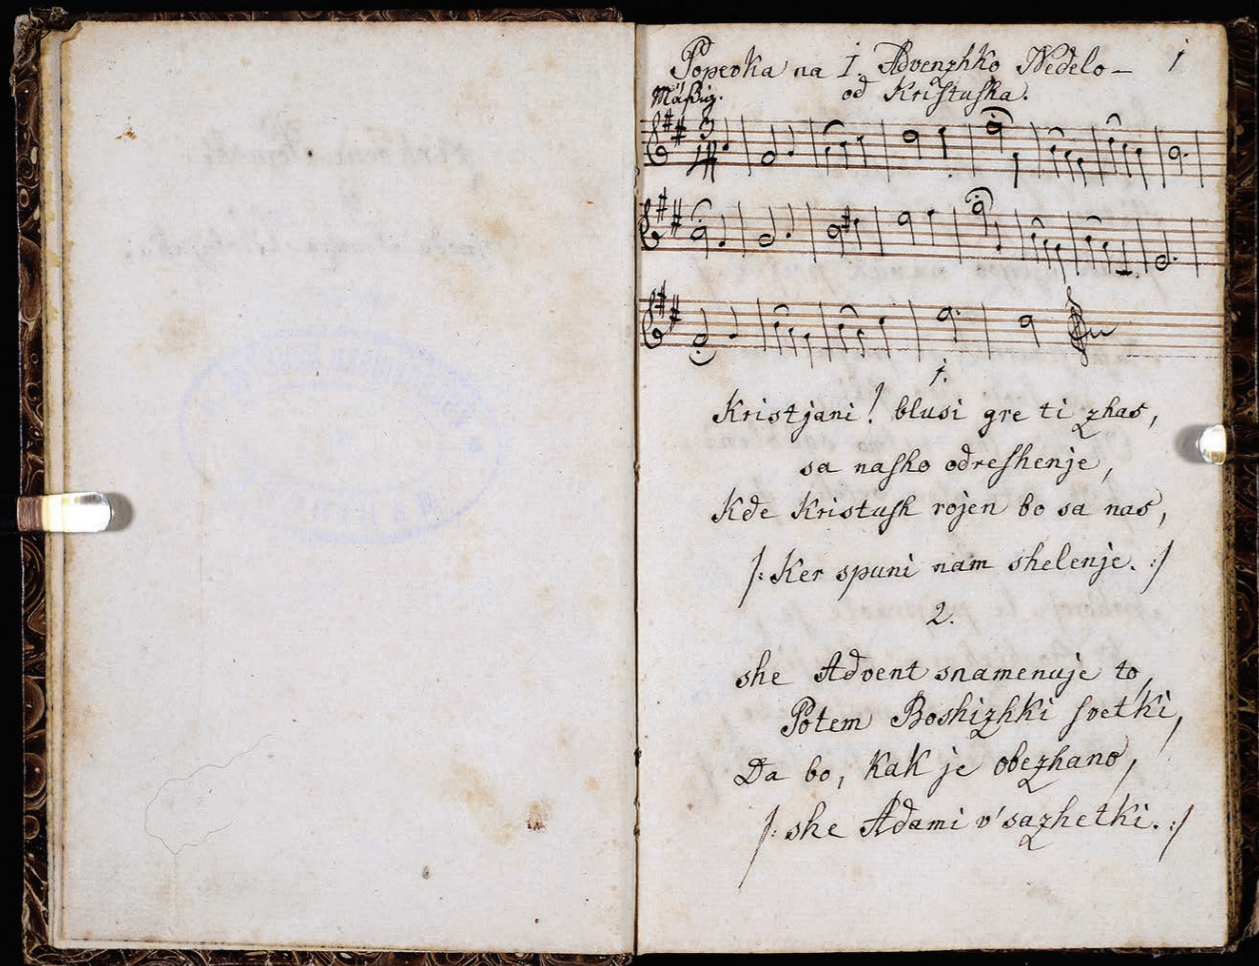 Popevka na I. Advenzhko Nedelo — 1
Mäßig. od Kriſtuſha.
3
4
1.
Kristjani! blusi gre ti zhas,
sa naſho odreſhenje,
Kde Kristuſh rojen bo sa nas,
/: Ker spuni nam shelenje. :/
2.
she Advent snamenuje to,
Potem Boshizhki ſvetki,
Da bo, kak je obezhano,
/: she Adami v' sazhetki. :/